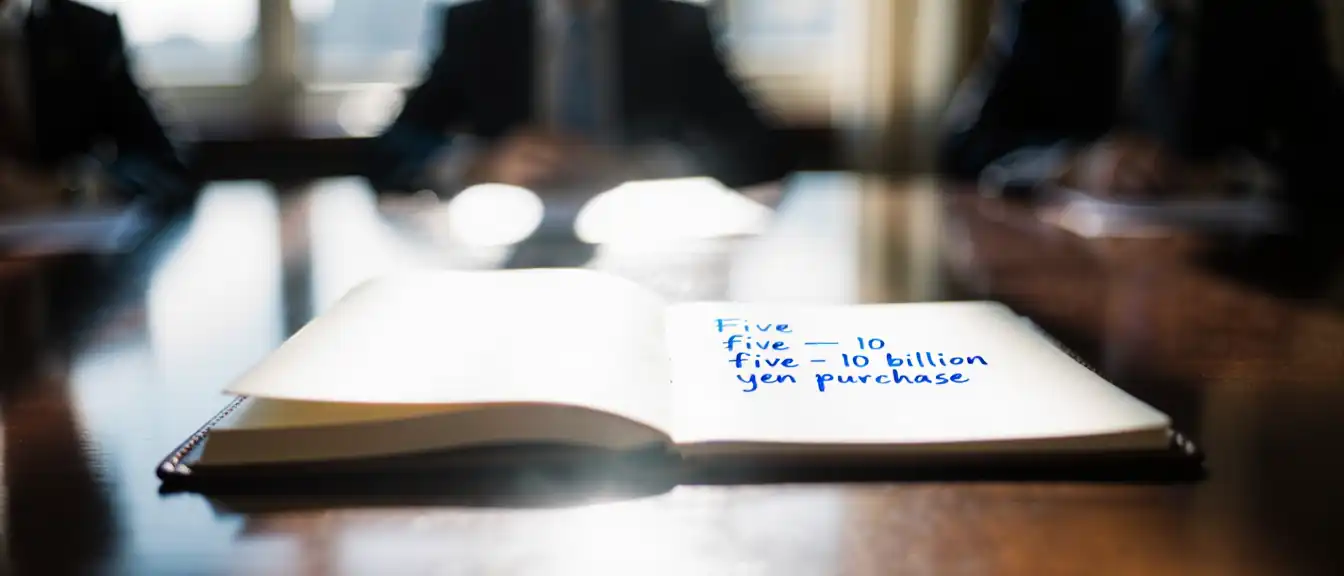 Five
five — 10
five – 10 billion
yen purchase